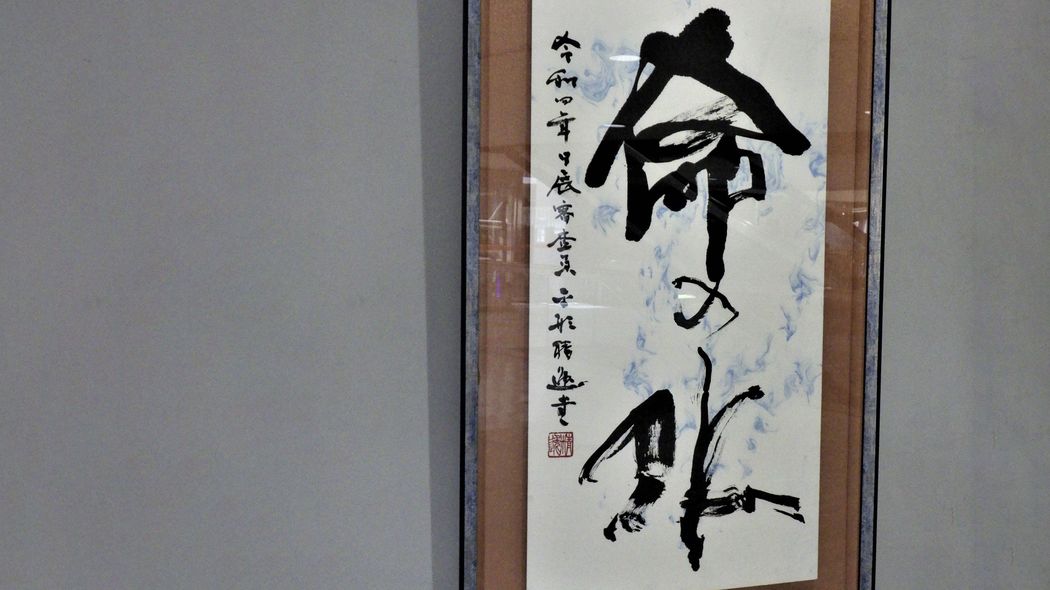 命の水
令和四年日展審査員
書